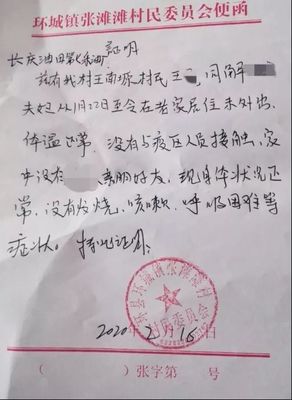 环城镇张滩滩村民委员会便函
证明
长庆油田第 采油厂
兹有我村王南塬村民王 同解
夫妇从1月12日至今在老家居住未外出
体温正常,没有与疫区人员接触,家
中没有 亲朋好友,现身体状况正
常,没有发烧、咳嗽、呼吸困难等
症状。特此证明。
环县环城镇张滩滩村
村民委员会
2020年2月16日
( )张字第 号